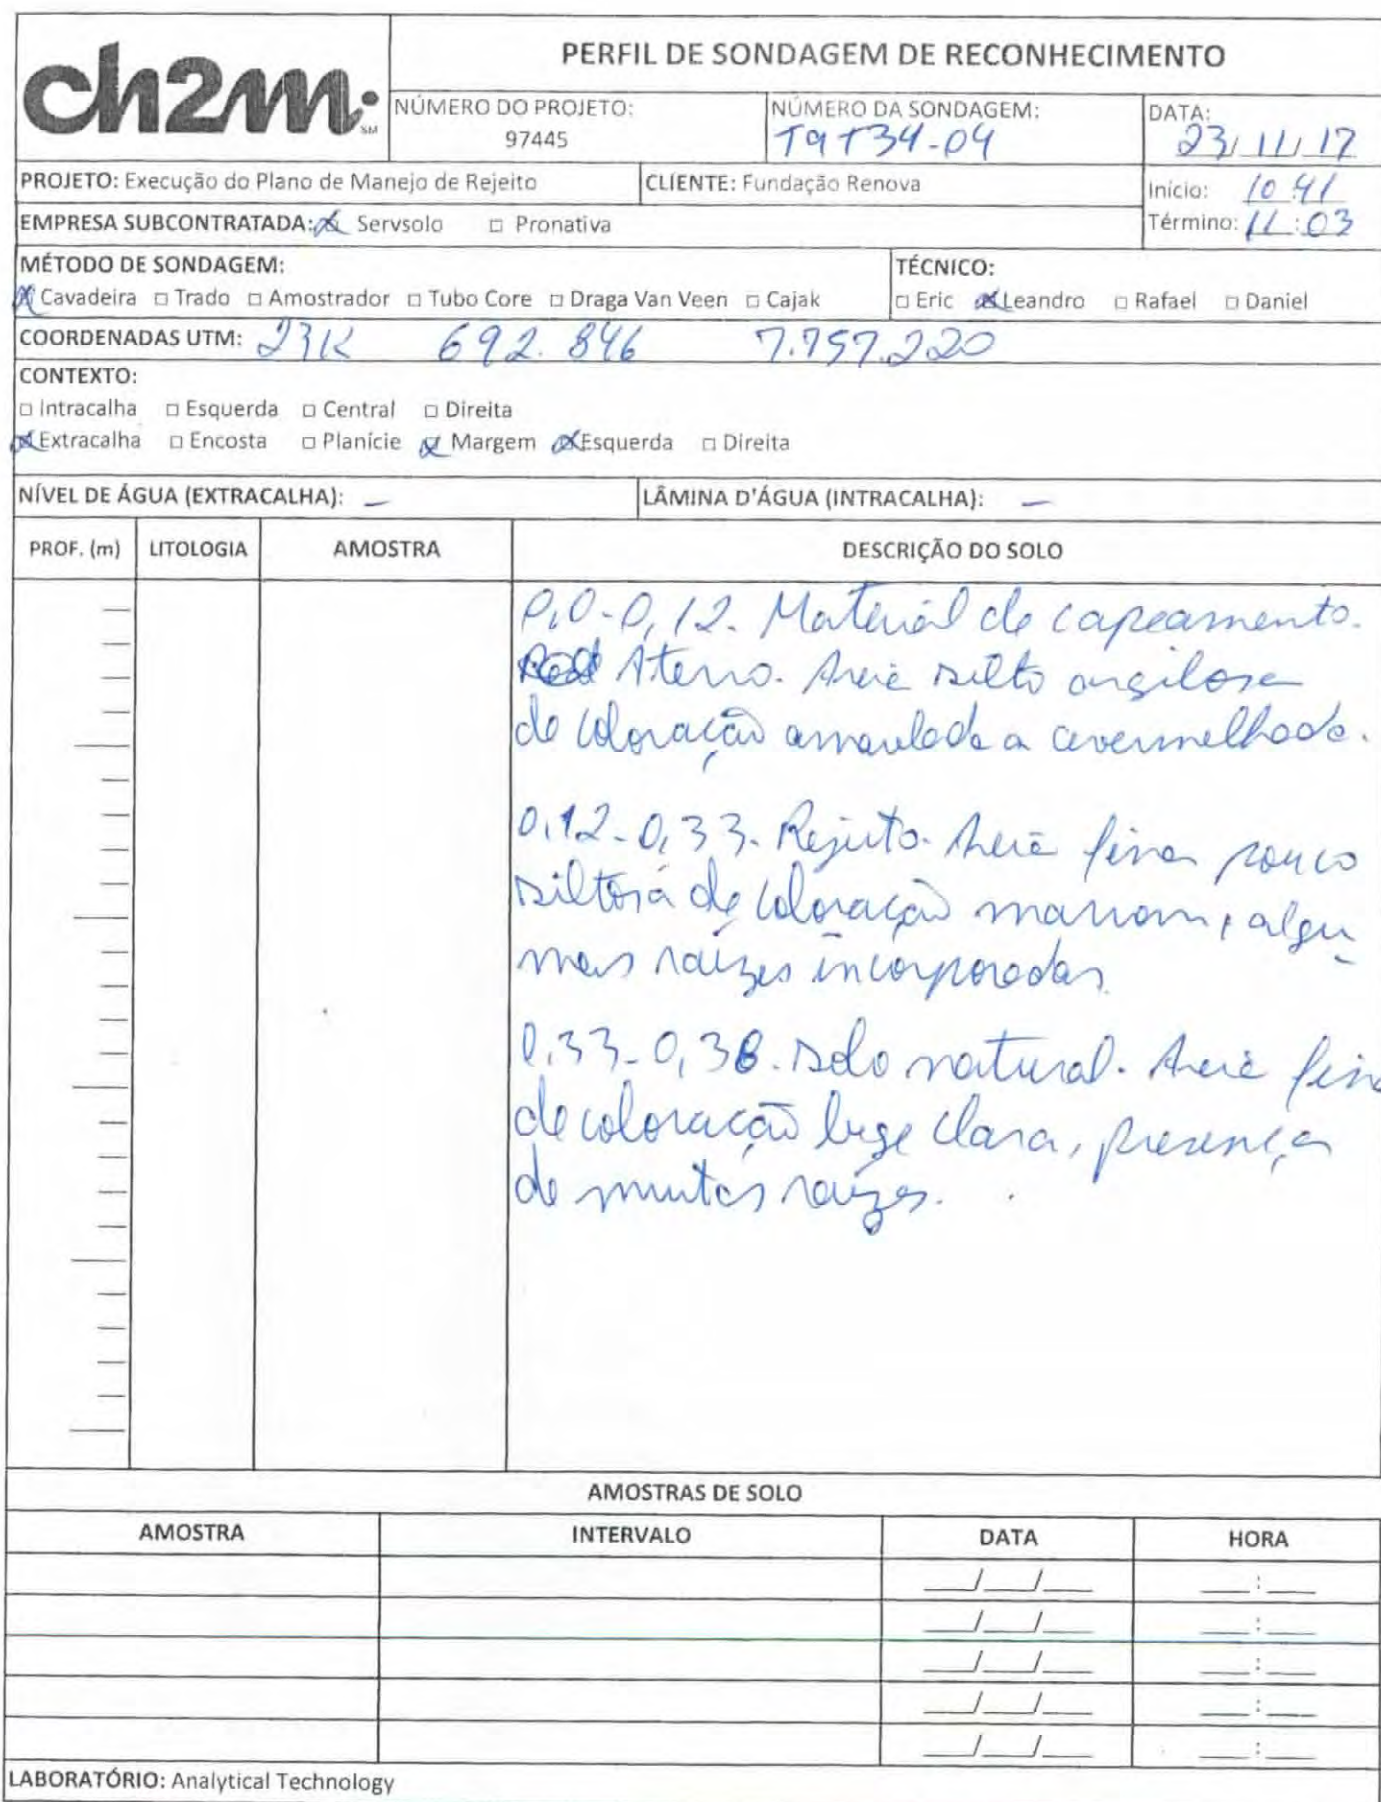 ch2m: SM
PERFIL DE SONDAGEM DE RECONHECIMENTO
NÚMERO DO PROJETO:
97445
NÚMERO DA SONDAGEM:
T9T34-04
DATA:
23/11/17
PROJETO: Execução do Plano de Manejo de Rejeito
CLIENTE: Fundação Renova
Início: 10:41
EMPRESA SUBCONTRATADA: ☒ Servsolo □ Pronativa
Término: 11:03
MÉTODO DE SONDAGEM:
☒ Cavadeira □ Trado □ Amostrador □ Tubo Core □ Draga Van Veen □ Cajak
TÉCNICO:
□ Eric ☒ Leandro □ Rafael □ Daniel
COORDENADAS UTM: 23K 692.846 7.757.220
CONTEXTO:
□ Intracalha □ Esquerda □ Central □ Direita
☒ Extracalha □ Encosta □ Planície ☒ Margem ☒ Esquerda □ Direita
NÍVEL DE ÁGUA (EXTRACALHA): –
LÂMINA D'ÁGUA (INTRACALHA): –
PROF. (m) LITOLOGIA AMOSTRA DESCRIÇÃO DO SOLO
0,0-0,12. Material de capeamento.
Aterro. Areia silto argilosa
de coloração amarelada a avermelhada.
0,12-0,33. Rejeito. Areia fina pouco
siltosa de coloração marrom, algu
mas raízes incorporadas.
0,33-0,38. Solo natural. Areia fina
de coloração bege clara, presença
de muitas raízes.
AMOSTRAS DE SOLO
AMOSTRA INTERVALO DATA HORA
___/___/___ ___:___
___/___/___ ___:___
___/___/___ ___:___
___/___/___ ___:___
___/___/___ ___:___
LABORATÓRIO: Analytical Technology